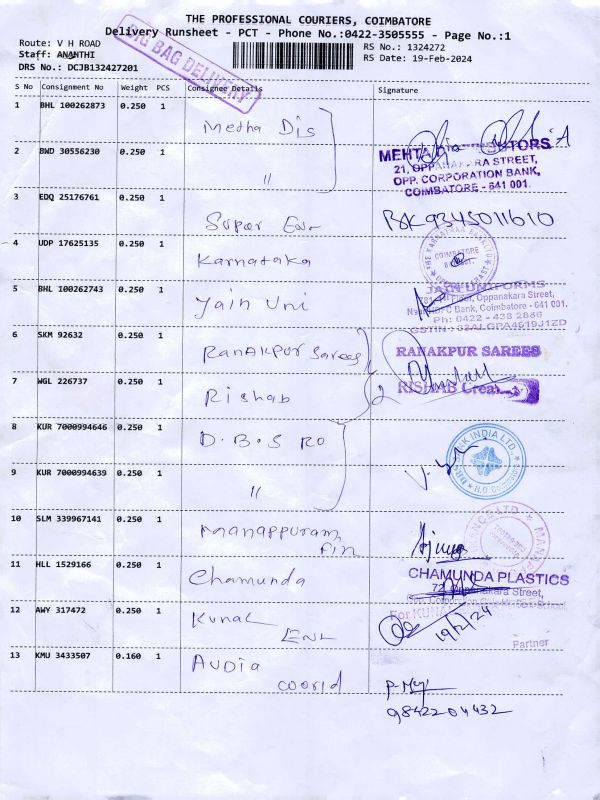 THE PROFESSIONAL COURIERS, COIMBATORE
Delivery Runsheet - PCT - Phone No.:0422-3505555 - Page No.:1
Route: V H ROAD
Staff: ANANTHI
DRS No.: DCJB132427201
RS No.: 1324272
RS Date: 19-Feb-2024
BIG BAG DELIVERY
S No Consignment No Weight PCS Consignee Details Signature
1 BHL 100262873 0.250 1
Metha Dis
2 BWD 30556230 0.250 1
"
MEHTA
21, OPPANAKARA STREET,
OPP. CORPORATION BANK,
COIMBATORE - 641 001.
3 EDQ 25176761 0.250 1
Super
4 UDP 17625135 0.250 1
Karnataka
COIMBATORE
5 BHL 100262743 0.250 1
Jain Uni
JAIN UNIFORMS
Floor, Oppanakara Street,
Bank, Coimbatore - 641 001.
Ph: 0422 - 438 2886
GSTIN :
6 SKM 92632 0.250 1
Ranakpur Sarees
RANAKPUR SAREES
7 WGL 226737 0.250 1
Rishab
2
RISHAB
8 KUR 7000994646 0.250 1
D.B.S RO
9 KUR 7000994639 0.250 1
"
BANK INDIA LTD.
10 SLM 339967141 0.250 1
Manappuram
Fin
11 HLL 1529166 0.250 1
Chamunda
CHAMUNDA PLASTICS
Street,
12 AWY 317472 0.250 1
Kunal
Ent
For KUNAL
19/2/24
Partner
13 KMU 3433507 0.160 1
Audia
coorld
9842204432